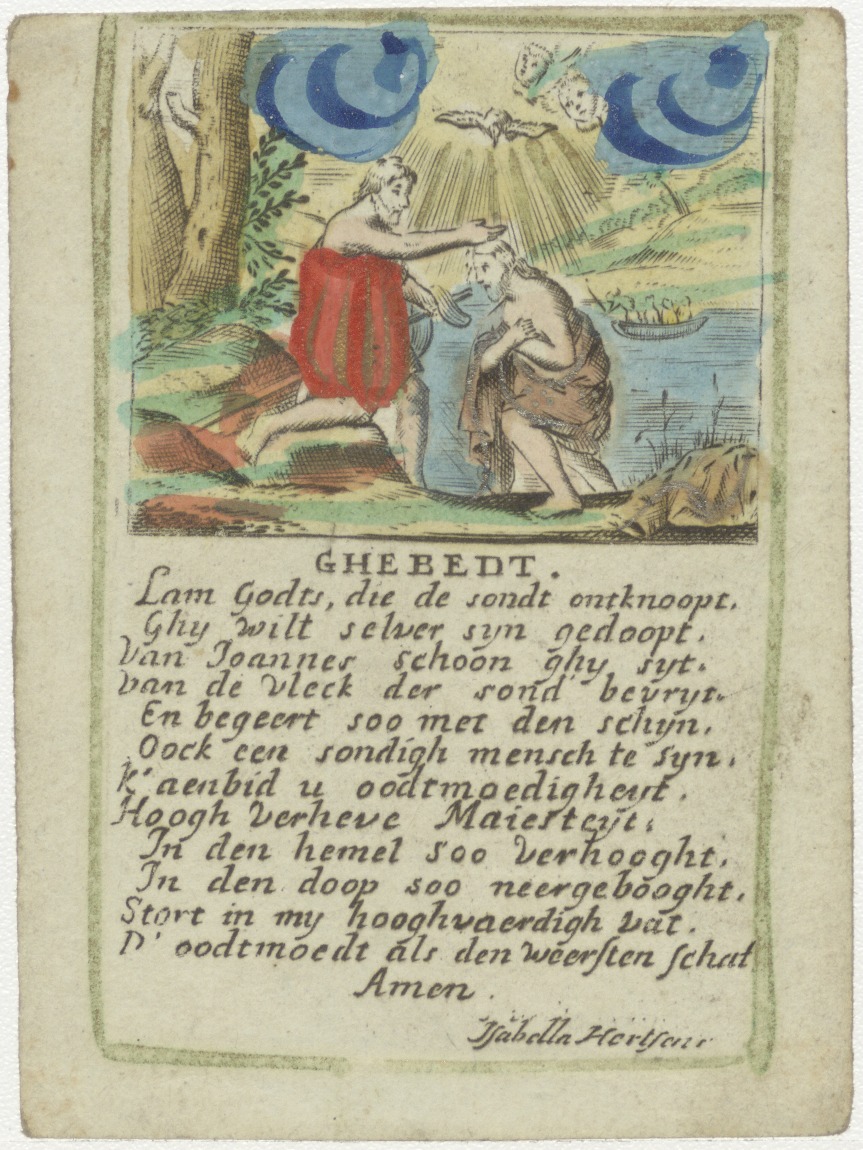 GHEBEDT.
Lam Godts, die de sondt ontknoopt.
Ghy wilt selver syn gedoopt.
Van Joannes schoon ghy syt.
van de vleck der sond bevryt.
En begeert soo met den schyn.
Oock een sondigh mensch te syn.
K'aenbid u oodtmoedigheyt.
Hoogh verheve Maiesteyt.
In den hemel soo verhooght.
In den doop soo neergebooght.
Stort in my hooghvaerdigh vat.
D'oodtmoedt als den weersten schat
Amen.
Isabella Hertsens